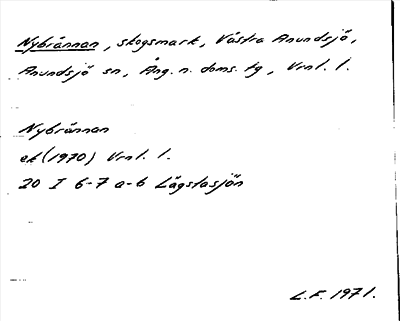 Nybrännan, skogsmark, Västra Anundsjö,
Anundsjö sn, Ång. n. doms. tg, Vrnl. l.
Nybrännan
ek (1970) Vrnl. l.
20 I 6-7 a-b Lägstasjön
L.F. 1971.